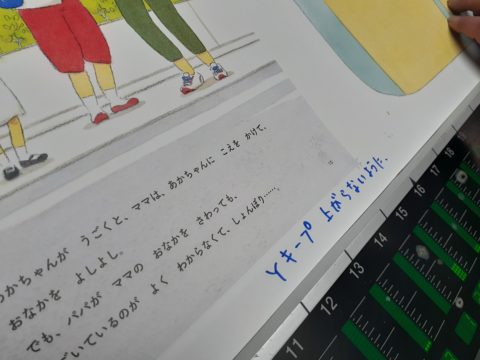 あかちゃんが うごくと、ママは、あかちゃんに こえを かけて、
おなかを よしよし。
でも、パパが ママの おなかを さわっても、
いているのが よく わからなくて、しょんぼり……。
Yキープ 上がらないように、
11 12 13 14 15 16 17 18